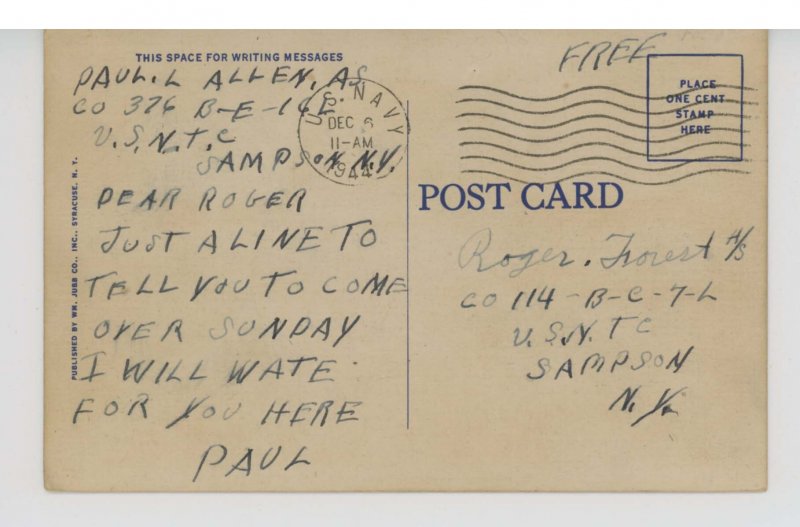 THIS SPACE FOR WRITING MESSAGES
PAUL. L ALLEN, AS
CO 376 B-E-16E
U.S.N.T.C
SAMPSON N.Y.
DEAR ROGER
JUST A LINE TO
TELL YOU TO COME
OVER SUNDAY
I WILL WATE
FOR YOU HERE
PAUL
PUBLISHED BY WM. JUBB CO., INC., SYRACUSE, N. Y.
U.S. NAVY
DEC 6
11-AM
1944
FREE
PLACE
ONE CENT
STAMP
HERE
POST CARD
Roger. Forest A/S
CO 114-B-C-7-L
U.S.N.T C
SAMPSON
N.Y.